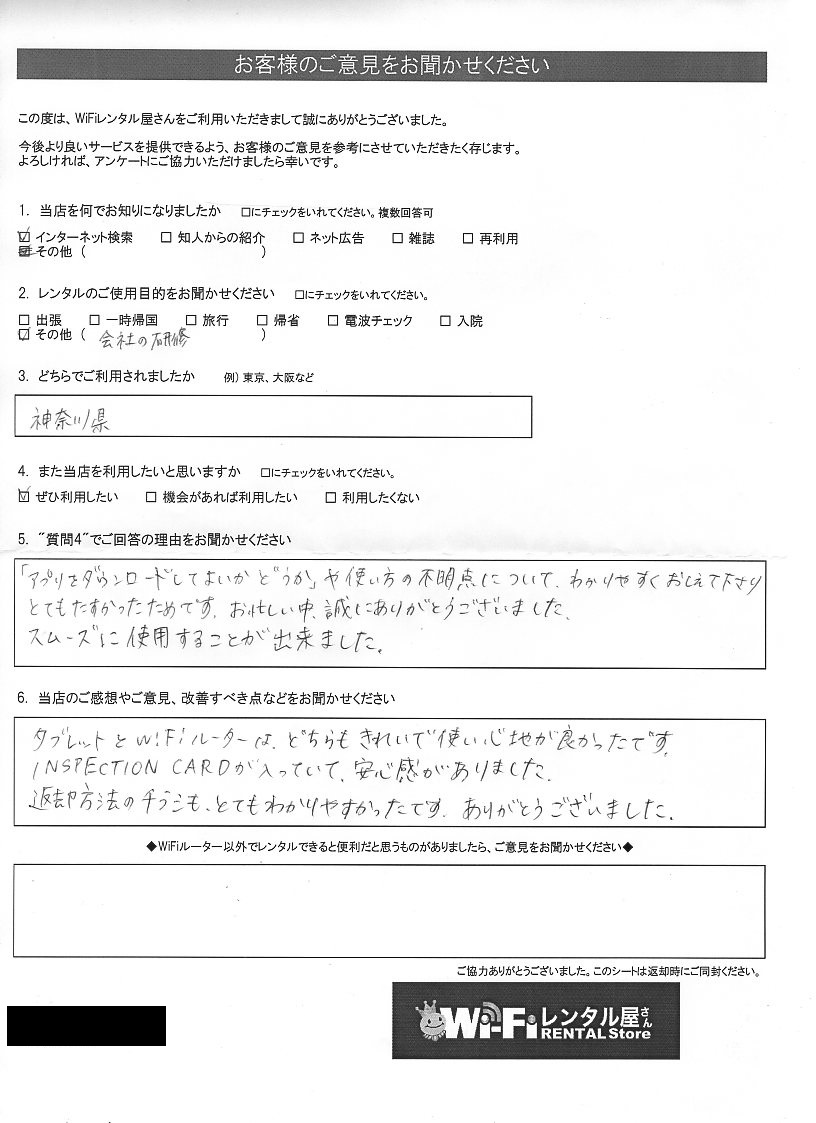 お客様のご意見をお聞かせください
この度は、WiFiレンタル屋さんをご利用いただきまして誠にありがとうございました。
今後より良いサービスを提供できるよう、お客様のご意見を参考にさせていただきたく存じます。
よろしければ、アンケートにご協力いただけましたら幸いです。
1. 当店を何でお知りになりましたか □にチェックをいれてください。複数回答可
☑ インターネット検索 □ 知人からの紹介 □ ネット広告 □ 雑誌 □ 再利用
■ その他 ( )
2. レンタルのご使用目的をお聞かせください □にチェックをいれてください。
□ 出張 □ 一時帰国 □ 旅行 □ 帰省 □ 電波チェック □ 入院
☑ その他 ( 会社の研修 )
3. どちらでご利用されましたか 例) 東京、大阪など
神奈川県
4. また当店を利用したいと思いますか □にチェックをいれてください。
☑ ぜひ利用したい □ 機会があれば利用したい □ 利用したくない
5. "質問4"でご回答の理由をお聞かせください
「アプリをダウンロードしてよいかどうか」や使い方の不明点について、わかりやすくおしえて下さり
とてもたすかったためです。お忙しい中、誠にありがとうございました。
スムーズに使用することが出来ました。
6. 当店のご感想やご意見、改善すべき点などをお聞かせください
タブレットとWiFiルーターは、どちらもきれいで使い心地が良かったです。
INSPECTION CARDが入っていて、安心感がありました。
返却方法のチラシも、とてもわかりやすかったです。ありがとうございました。
◆WiFiルーター以外でレンタルできると便利だと思うものがありましたら、ご意見をお聞かせください◆
ご協力ありがとうございました。このシートは返却時にご同封ください。
Wi-Fiレンタル屋さん
RENTAL Store